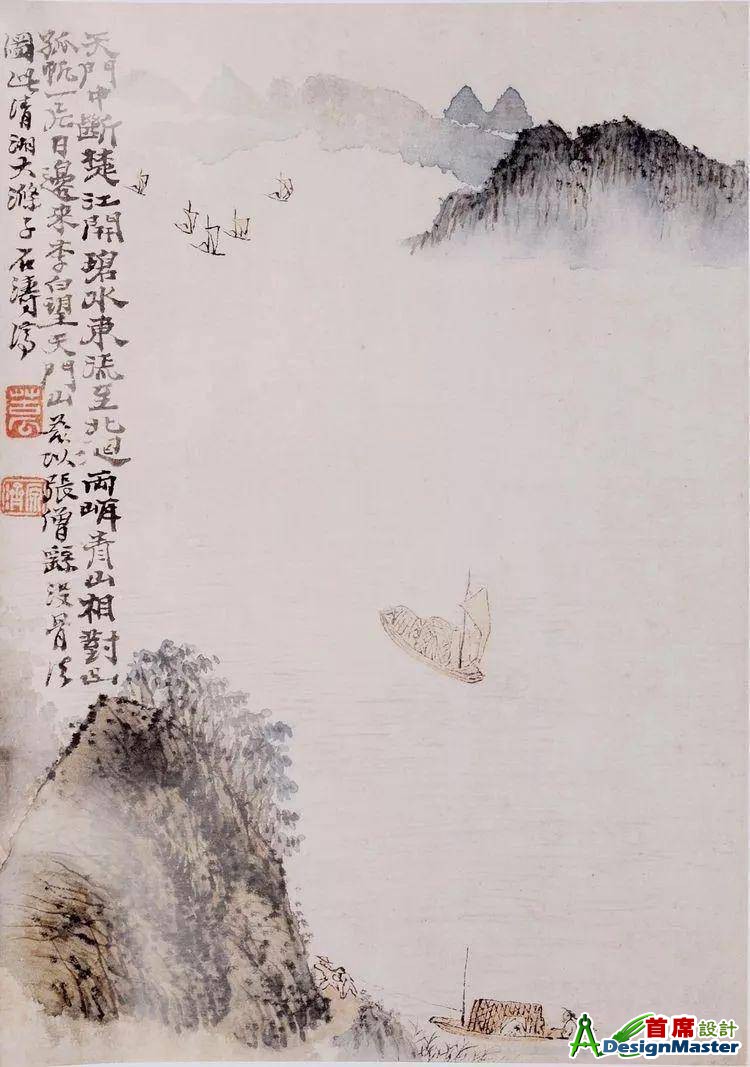 天門中斷楚江開碧水東流至北迴兩岸青山相對出
孤帆一片日邊來李白望天門山茲以張僧繇沒骨法
圖此清湘大滌子石濤濟
首席設計
DesignMaster